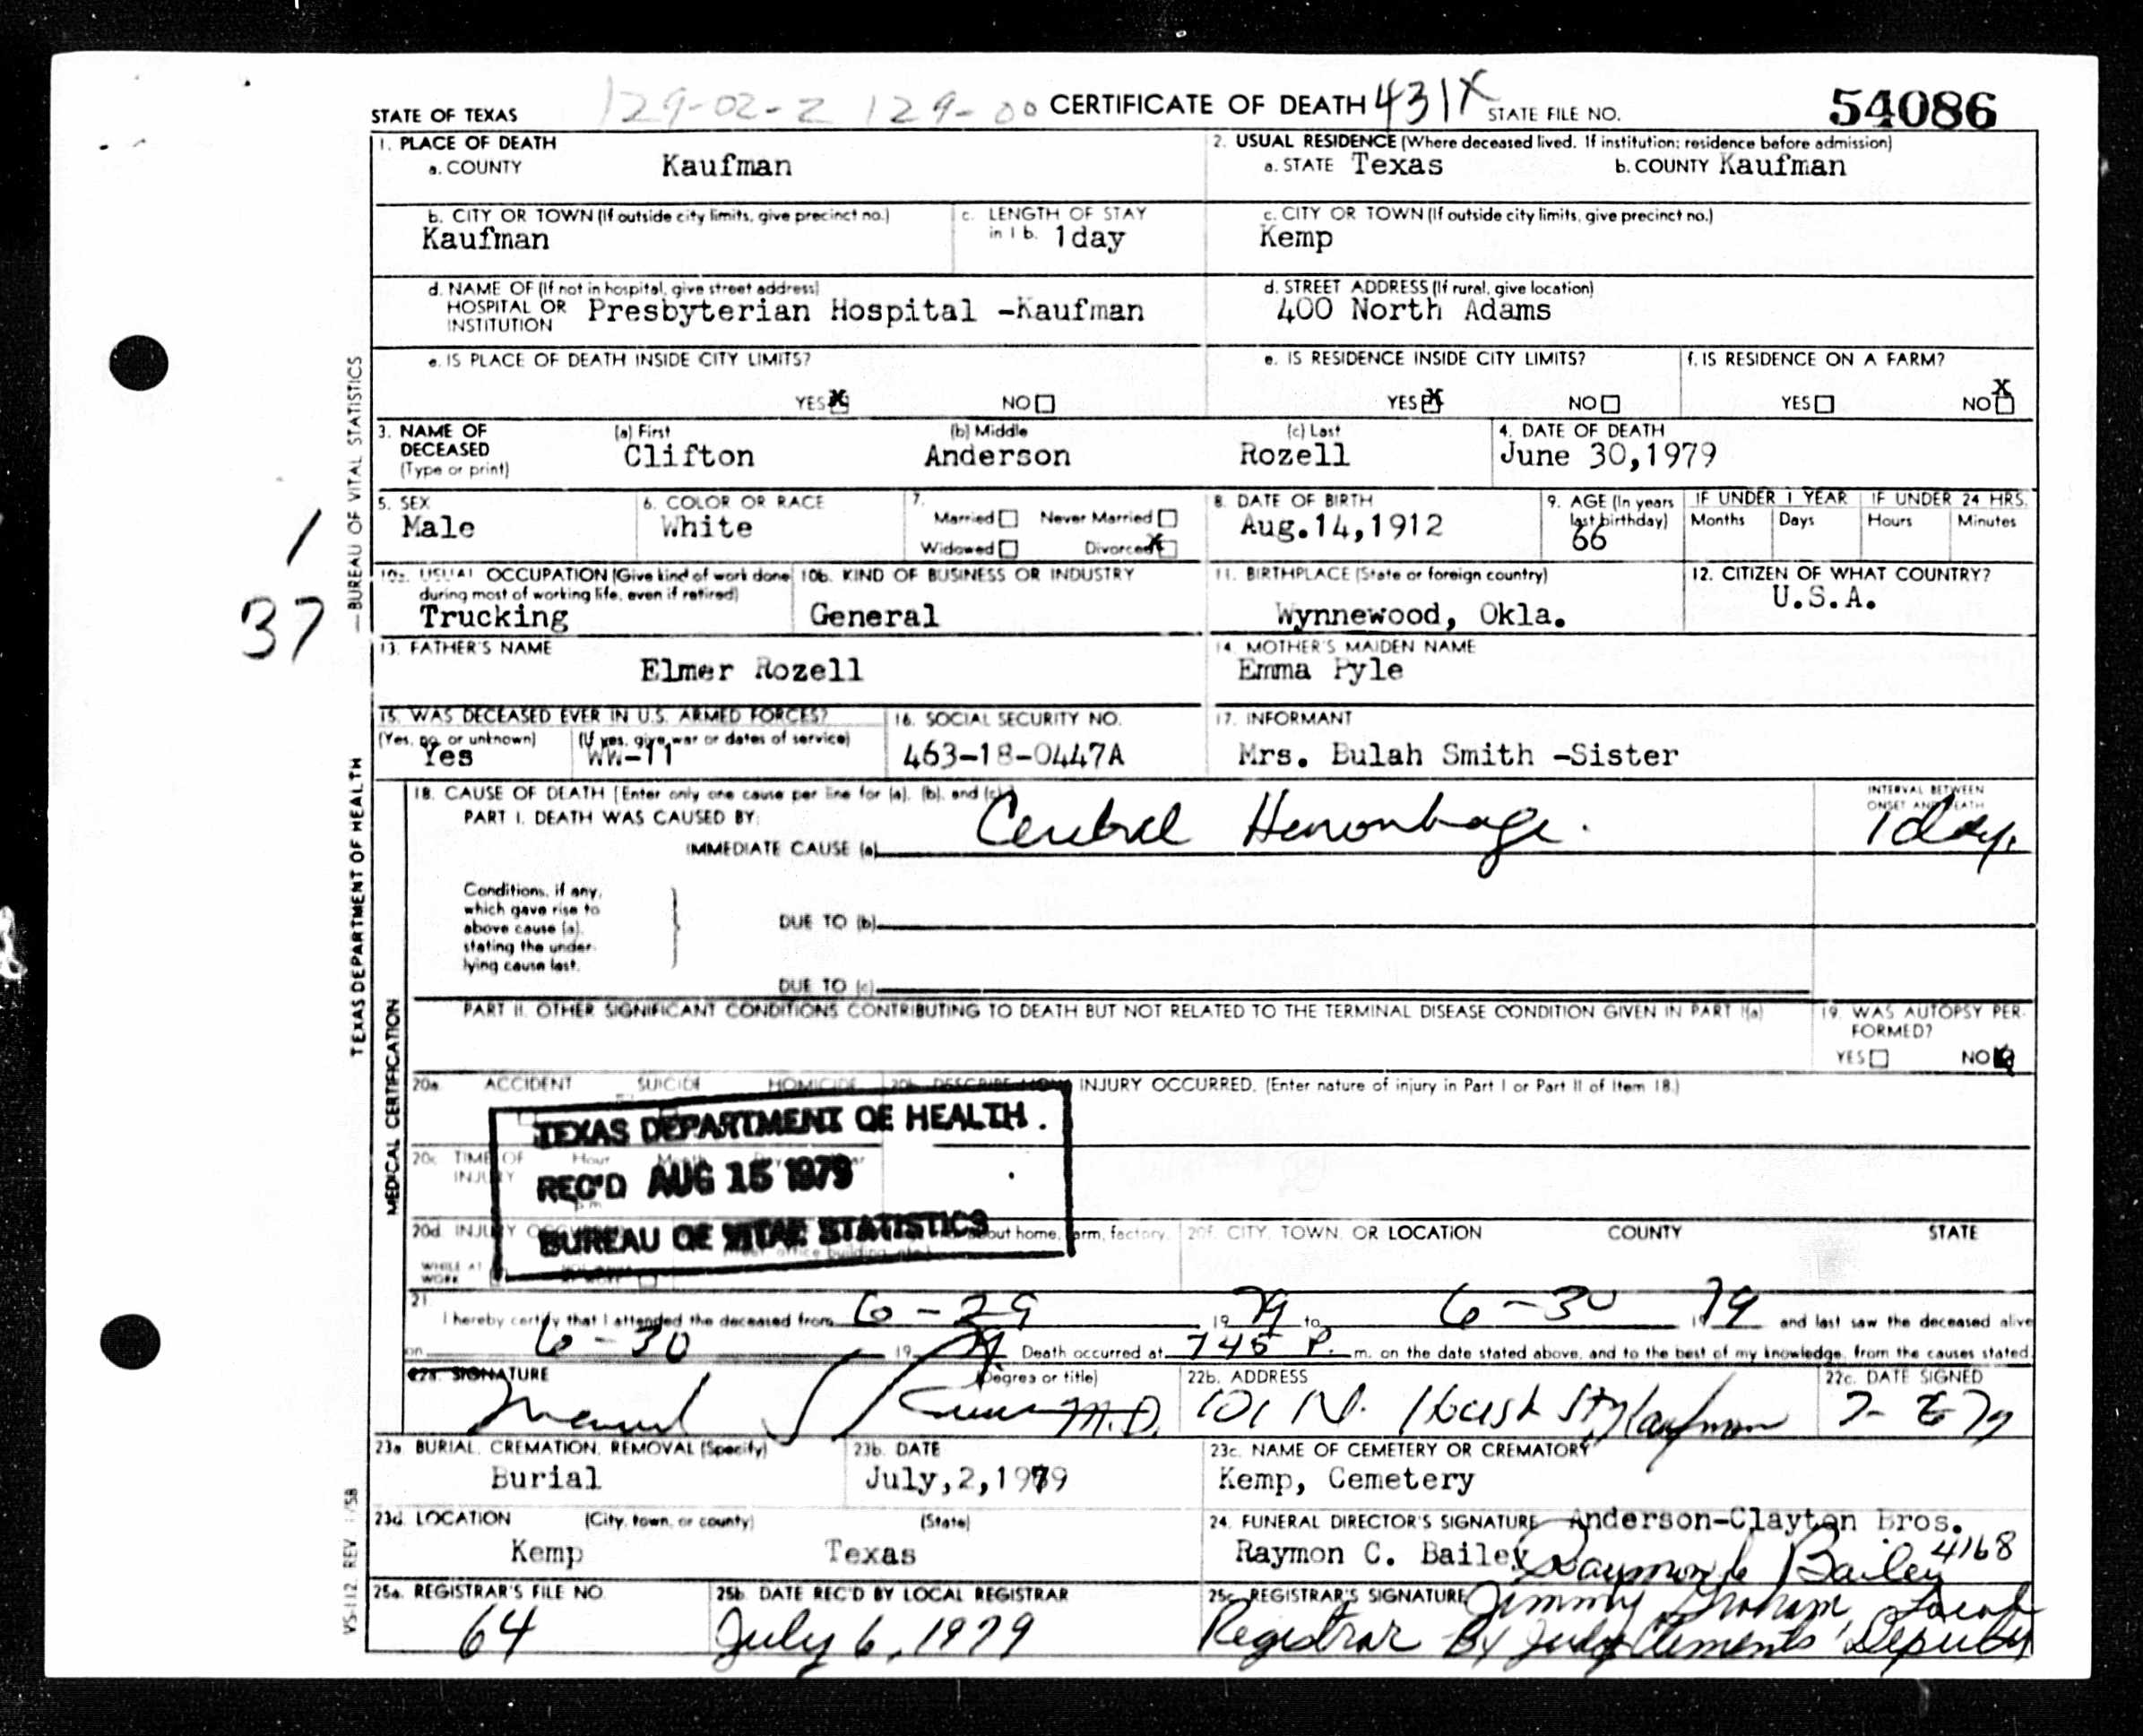 STATE OF TEXAS 129-02-2 129-00 CERTIFICATE OF DEATH 431X STATE FILE NO. 54086
1. PLACE OF DEATH
a. COUNTY Kaufman
2. USUAL RESIDENCE (Where deceased lived. If institution: residence before admission)
a. STATE Texas b. COUNTY Kaufman
b. CITY OR TOWN (If outside city limits, give precinct no.)
Kaufman
c. LENGTH OF STAY
in 1 b. 1day
c. CITY OR TOWN (If outside city limits, give precinct no.)
Kemp
d. NAME OF (If not in hospital, give street address)
HOSPITAL OR
INSTITUTION Presbyterian Hospital -Kaufman
d. STREET ADDRESS (If rural, give location)
400 North Adams
e. IS PLACE OF DEATH INSIDE CITY LIMITS?
YES X NO
e. IS RESIDENCE INSIDE CITY LIMITS?
YES X NO
f. IS RESIDENCE ON A FARM?
YES NO X
3. NAME OF
DECEASED
(Type or print)
(a) First
Clifton
(b) Middle
Anderson
(c) Last
Rozell
4. DATE OF DEATH
June 30,1979
5. SEX
Male
6. COLOR OR RACE
White
7.
Married Never Married
Widowed Divorced X
8. DATE OF BIRTH
Aug.14,1912
9. AGE (In years
last birthday)
66
IF UNDER 1 YEAR
Months Days
IF UNDER 24 HRS.
Hours Minutes
10a. USUAL OCCUPATION (Give kind of work done
during most of working life, even if retired)
Trucking
10b. KIND OF BUSINESS OR INDUSTRY
General
11. BIRTHPLACE (State or foreign country)
Wynnewood, Okla.
12. CITIZEN OF WHAT COUNTRY?
U.S.A.
13. FATHER'S NAME
Elmer Rozell
14. MOTHER'S MAIDEN NAME
Emma Pyle
15. WAS DECEASED EVER IN U.S. ARMED FORCES?
(Yes, no, or unknown) (If yes, give war or dates of service)
Yes WW-11
16. SOCIAL SECURITY NO.
463-18-0447A
17. INFORMANT
Mrs. Bulah Smith -Sister
18. CAUSE OF DEATH [Enter only one cause per line for (a), (b), and (c).]
PART I. DEATH WAS CAUSED BY:
IMMEDIATE CAUSE (a) Cerebral Hemorrhage.
INTERVAL BETWEEN
ONSET AND DEATH
1 day.
Conditions, if any,
which gave rise to
above cause (a),
stating the under-
lying cause last.
DUE TO (b)
DUE TO (c)
PART II. OTHER SIGNIFICANT CONDITIONS CONTRIBUTING TO DEATH BUT NOT RELATED TO THE TERMINAL DISEASE CONDITION GIVEN IN PART I(a)
19. WAS AUTOPSY PER-
FORMED?
YES NO X
20a. ACCIDENT SUICIDE HOMICIDE 20b. DESCRIBE HOW INJURY OCCURRED. (Enter nature of injury in Part I or Part II of Item 18.)
TEXAS DEPARTMENT OF HEALTH
REC'D AUG 15 1979
BUREAU OF VITAL STATISTICS
20c. TIME OF
INJURY
Hour Month
p.m.
20d. INJURY
WHILE AT
WORK
about home, farm, factory,
office building
20f. CITY, TOWN, OR LOCATION COUNTY STATE
21
I hereby certify that I attended the deceased from 6-29 1979 to 6-30 1979 and last saw the deceased alive
on 6-30 1979 Death occurred at 745 P. m. on the date stated above, and to the best of my knowledge, from the causes stated.
22a. SIGNATURE (Degree or title)
M.D.
22b. ADDRESS
101 N. St Kaufman
22c. DATE SIGNED
23a. BURIAL, CREMATION, REMOVAL (Specify)
Burial
23b. DATE
July,2,1979
23c. NAME OF CEMETERY OR CREMATORY
Kemp, Cemetery
23d. LOCATION (City, town, or county) (State)
Kemp Texas
24. FUNERAL DIRECTOR'S SIGNATURE Anderson-Clayton Bros.
Raymon C. Bailey Raymon C. Bailey 4168
25a. REGISTRAR'S FILE NO.
64
25b. DATE REC'D BY LOCAL REGISTRAR
July 6, 1979
25c. REGISTRAR'S SIGNATURE Jimmy Graham, Local
Registrar By Judy Clements, Deputy
1
37
TEXAS DEPARTMENT OF HEALTH — BUREAU OF VITAL STATISTICS
MEDICAL CERTIFICATION
VS-112 REV 1/58